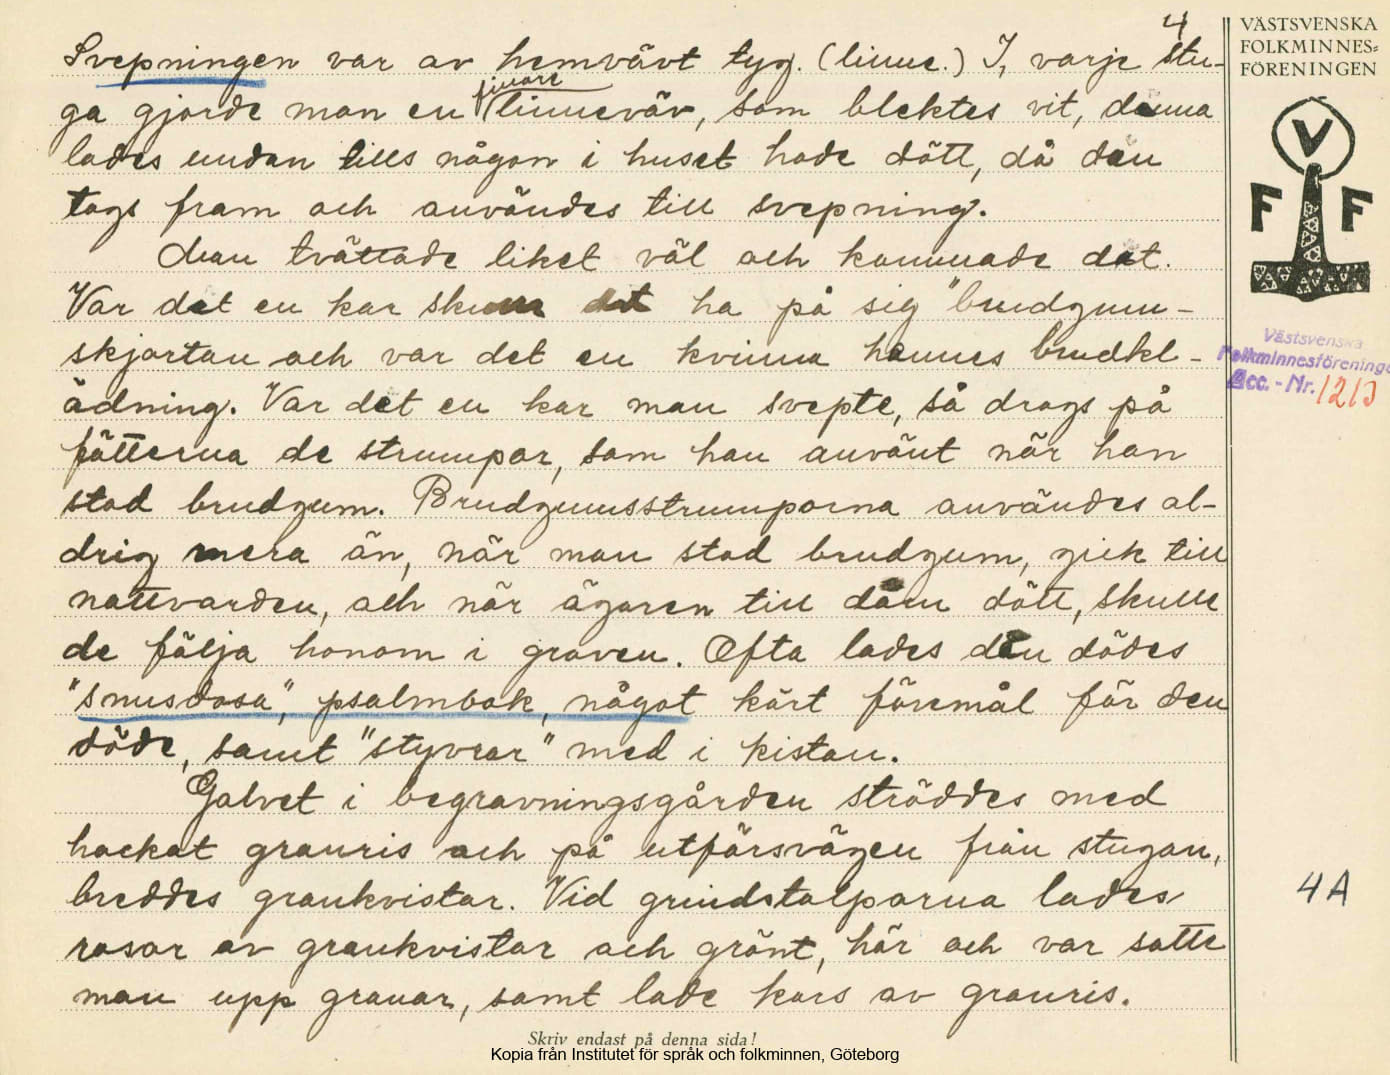 4
VÄSTSVENSKA
FOLKMINNES=
FÖRENINGEN
V
F F
Västsvenska
Folkminnesföreningen
Acc. - Nr. 1213
4A
Svepningen var av hemvävt tyg. (linne.) I, varje stu-
ga gjorde man en finare linneväv, som blektes vit, denna
lades undan tills någon i huset hade dött, då den
togs fram och användes till svepning.
Man tvättade liket väl och kammade det.
Var det en kar skulle det ha på sig "brudgum-
skjortan och var det en kvinna hennes brudkl-
ädning. Var det en kar man svepte, så drogs på
fötterna de strumpor, som han använt när han
stod brudgum. Brudgumsstrumporna användes al-
drig mera än, när man stod brudgum, gick till
nattvarden, och när ägaren till dem dött, skulle
de följa honom i graven. Ofta lades den dödes
"snusdosa", psalmbok, något kärt föremål för den
döde, samt "styvrar" med i kistan.
Golvet i begravningsgården ströddes med
hackat granris och på utförsvägen från stugan,
breddes grankvistar. Vid grindstolparna lades
rosor av grankvistar och grönt, här och var satte
man upp granar, samt lade kors av granris.
Skriv endast på denna sida!
Kopia från Institutet för språk och folkminnen, Göteborg